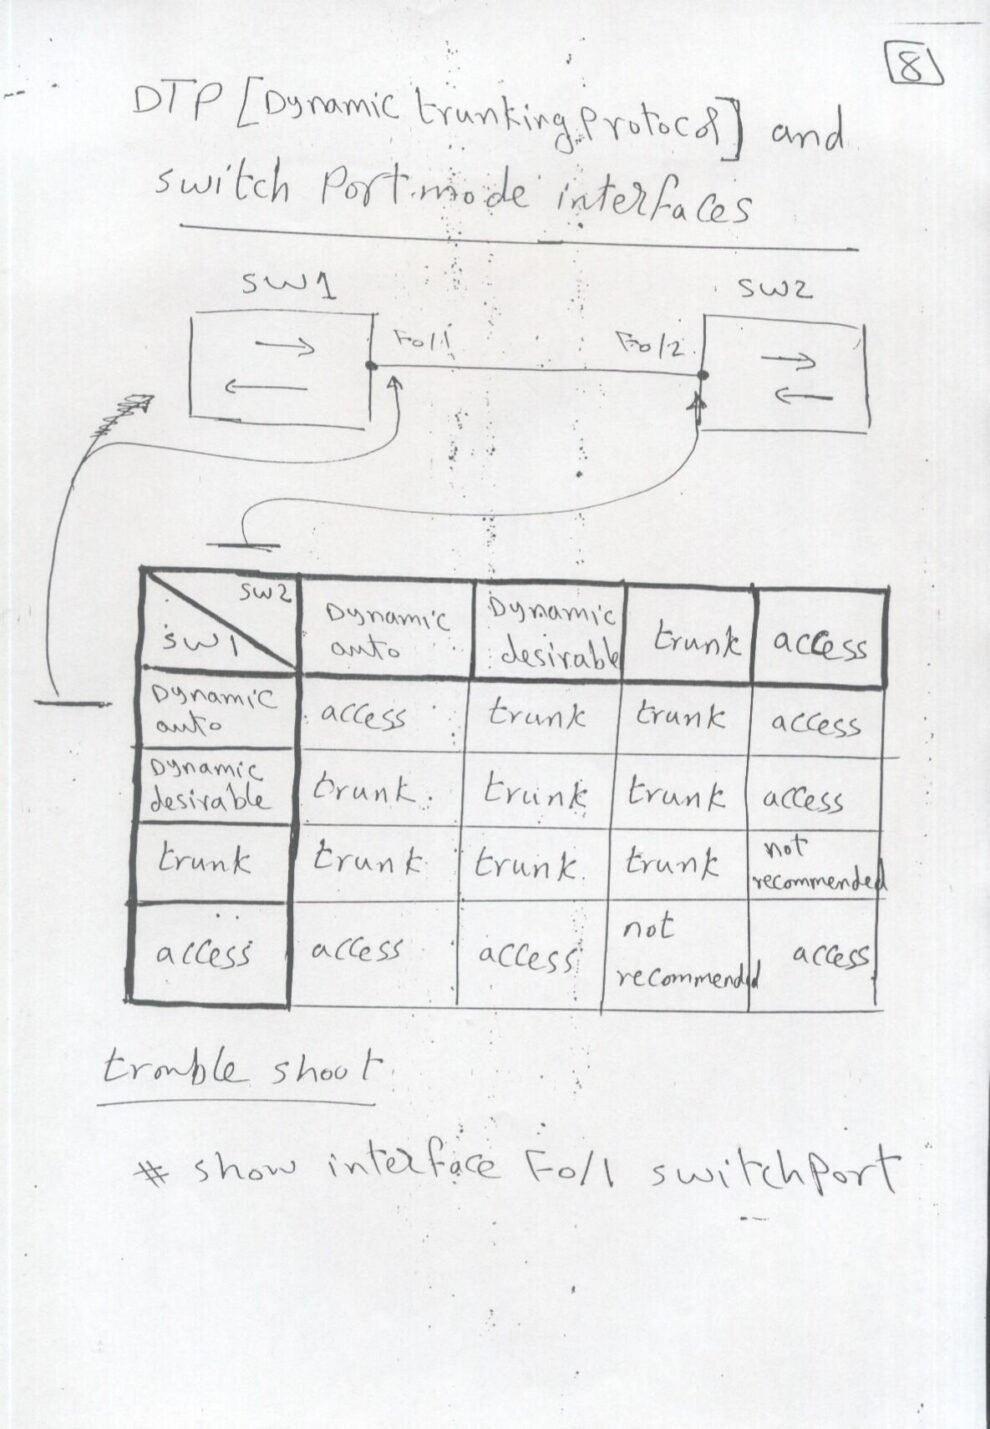 8
DTP [Dynamic trunking Protocol] and
switch Port mode interfaces
SW1
SW2
F0/1
F0/2
SW2
SW1
Dynamic
auto
Dynamic
desirable
trunk
access
Dynamic
auto
access
trunk
trunk
access
Dynamic
desirable
trunk
trunk
trunk
access
trunk
trunk
trunk
trunk
not
recommended
access
access
access
not
recommended
access
trouble shoot
# show interface F0/1 switchport